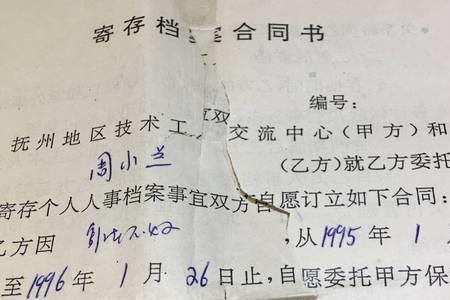 寄存档案合同书
编号：
抚州地区技术工 宜双 交流中心（甲方）和
周小兰 （乙方）就乙方委托
寄存个人人事档案事宜双方自愿订立如下合同：
乙方因 ，从1995年1
至1996年1月26日止，自愿委托甲方保